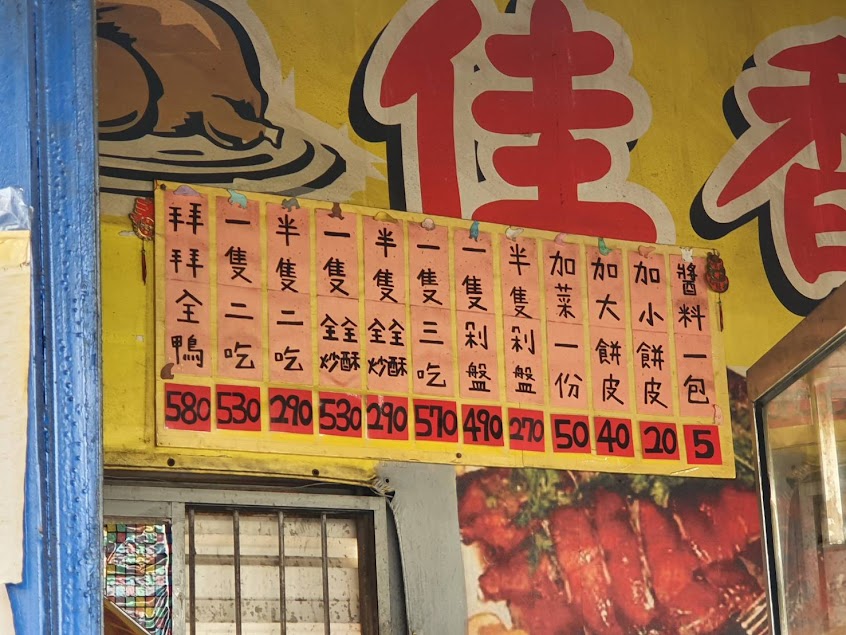 佳香
拜拜全鴨 580
一隻二吃 530
半隻二吃 290
一隻全炒全酥 530
半隻全炒全酥 290
一隻三吃 570
一隻剁盤 490
半隻剁盤 270
加菜一份 50
加大餅皮 40
加小餅皮 20
醬料一包 5